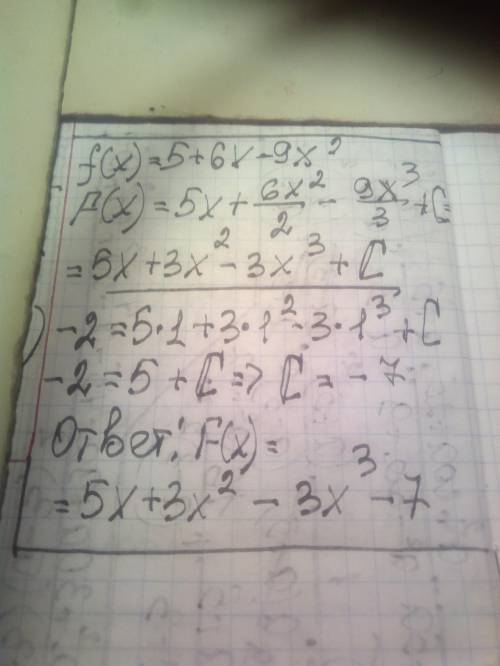 f(x)=5+6x-9x²
F(x)=5x+6x²/2-9x³/3+C=
=5x+3x²-3x³+C
-2=5·1+3·1²-3·1³+C
-2=5+C=>C=-7
Ответ: F(x)=
=5x+3x²-3x³-7